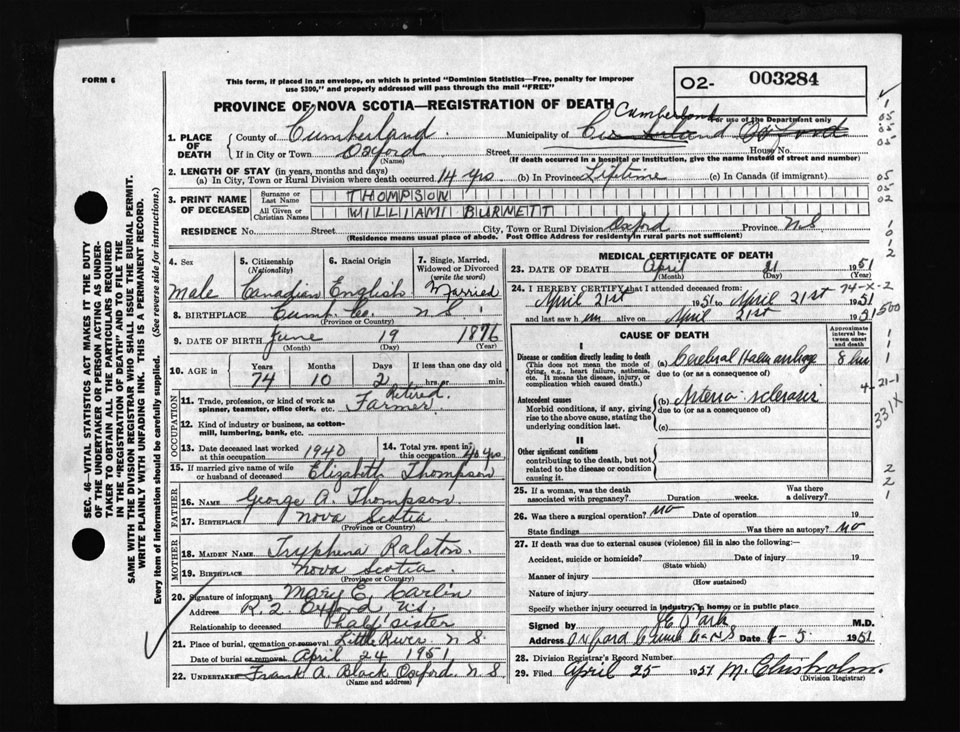 FORM 6
This form, if placed in an envelope, on which is printed "Dominion Statistics—Free, penalty for improper
use $300," and properly addressed will pass through the mail "FREE"
O2- 003284
For use of the Department only
PROVINCE OF NOVA SCOTIA—REGISTRATION OF DEATH
Cumberland
1. PLACE OF DEATH County of Cumberland Municipality of Cumberland Oxford
If in City or Town Oxford (Name) Street House No.
(If death occurred in a hospital or institution, give the name instead of street and number)
2. LENGTH OF STAY (in years, months and days)
(a) In City, Town or Rural Division where death occurred 14 yrs (b) In Province Lifetime (c) In Canada (if immigrant)
3. PRINT NAME OF DECEASED Surname or Last Name THOMPSON
All Given or Christian Names WILLIAM BURNETT
RESIDENCE No. Street City, Town or Rural Division Oxford Province N S
(Residence means usual place of abode. Post Office Address for residents in rural parts not sufficient)
4. Sex Male
5. Citizenship (Nationality) Canadian
6. Racial Origin English
7. Single, Married, Widowed or Divorced (write the word) Married
8. BIRTHPLACE Cumb. Co. N S.
(Province or Country)
9. DATE OF BIRTH June 19 1876
(Month) (Day) (Year)
10. AGE in Years Months Days If less than one day old
74 10 2 hrs. or min.
OCCUPATION
11. Trade, profession, or kind of work as spinner, teamster, office clerk, etc. Retired Farmer
12. Kind of industry or business, as cotton-mill, lumbering, bank, etc.
13. Date deceased last worked at this occupation 1940
14. Total yrs. spent in this occupation yrs
15. If married give name of wife or husband of deceased Elizabeth Thompson
FATHER
16. NAME George A. Thompson.
17. BIRTHPLACE Nova Scotia.
(Province or Country)
MOTHER
18. MAIDEN NAME Tryphena Ralston.
19. BIRTHPLACE Nova Scotia.
(Province or Country)
20. Signature of informant Mary E. Carlin
Address R. 2. Oxford N.S.
Relationship to deceased half sister
21. Place of burial, cremation or removal Little River. N S.
Date of burial or removal April 24 1951
22. UNDERTAKER Frank A. Black Oxford. N S.
(Name and address)
MEDICAL CERTIFICATE OF DEATH
23. DATE OF DEATH April 21 1951
(Month) (Day) (Year)
74-X-2
24. I HEREBY CERTIFY that I attended deceased from:
April 21st 1951 to April 21st 1951
and last saw him alive on April 21st 1951
CAUSE OF DEATH
Approximate interval between onset and death
I
Disease or condition directly leading to death (a) Cerebral Haemorrhage 8 hrs
(This does not mean the mode of dying, e.g., heart failure, asthenia, etc. It means the disease, injury, or complication which caused death.)
due to (or as a consequence of)
Antecedent causes (b) Arterio sclerosis
Morbid conditions, if any, giving rise to the above cause, stating the underlying condition last.
due to (or as a consequence of)
(c)
II
Other significant conditions
contributing to the death, but not related to the disease or condition causing it.
25. If a woman, was the death associated with pregnancy? Duration weeks. Was there a delivery?
26. Was there a surgical operation? no Date of operation 19
State findings Was there an autopsy? no
27. If death was due to external causes (violence) fill in also the following:—
Accident, suicide or homicide? Date of injury 19
(State which)
Manner of injury
(How sustained)
Nature of injury
Specify whether injury occurred in industry, in home, or in public place
Signed by M.D.
Address Oxford Date 1951
28. Division Registrar's Record Number
29. Filed April 25 1951 M. Chisholm.
(Division Registrar)
SEC. 46—VITAL STATISTICS ACT MAKES IT THE DUTY
OF THE UNDERTAKER OR PERSON ACTING AS UNDER-
TAKER TO OBTAIN ALL THE PARTICULARS REQUIRED
IN THE "REGISTRATION OF DEATH" AND TO FILE THE
SAME WITH THE DIVISION REGISTRAR WHO SHALL ISSUE THE BURIAL PERMIT.
WRITE PLAINLY WITH UNFADING INK. THIS IS A PERMANENT RECORD.
Every item of information should be carefully supplied. (See reverse side for instructions.)
1
05
05
05
02
1
0
1
2
500
1
1
1
4-21-1
331X
2
2
1